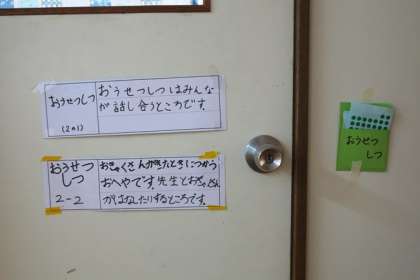 おうせつしつ
(2の1)
おうせつしつはみんな
が話し合うところです。
おうせつ
しつ
2-2
おきゃくさんがきたときにつかう
おへやです。先生とおきゃくさん
がはなしたりするところです。
おうせつ
しつ